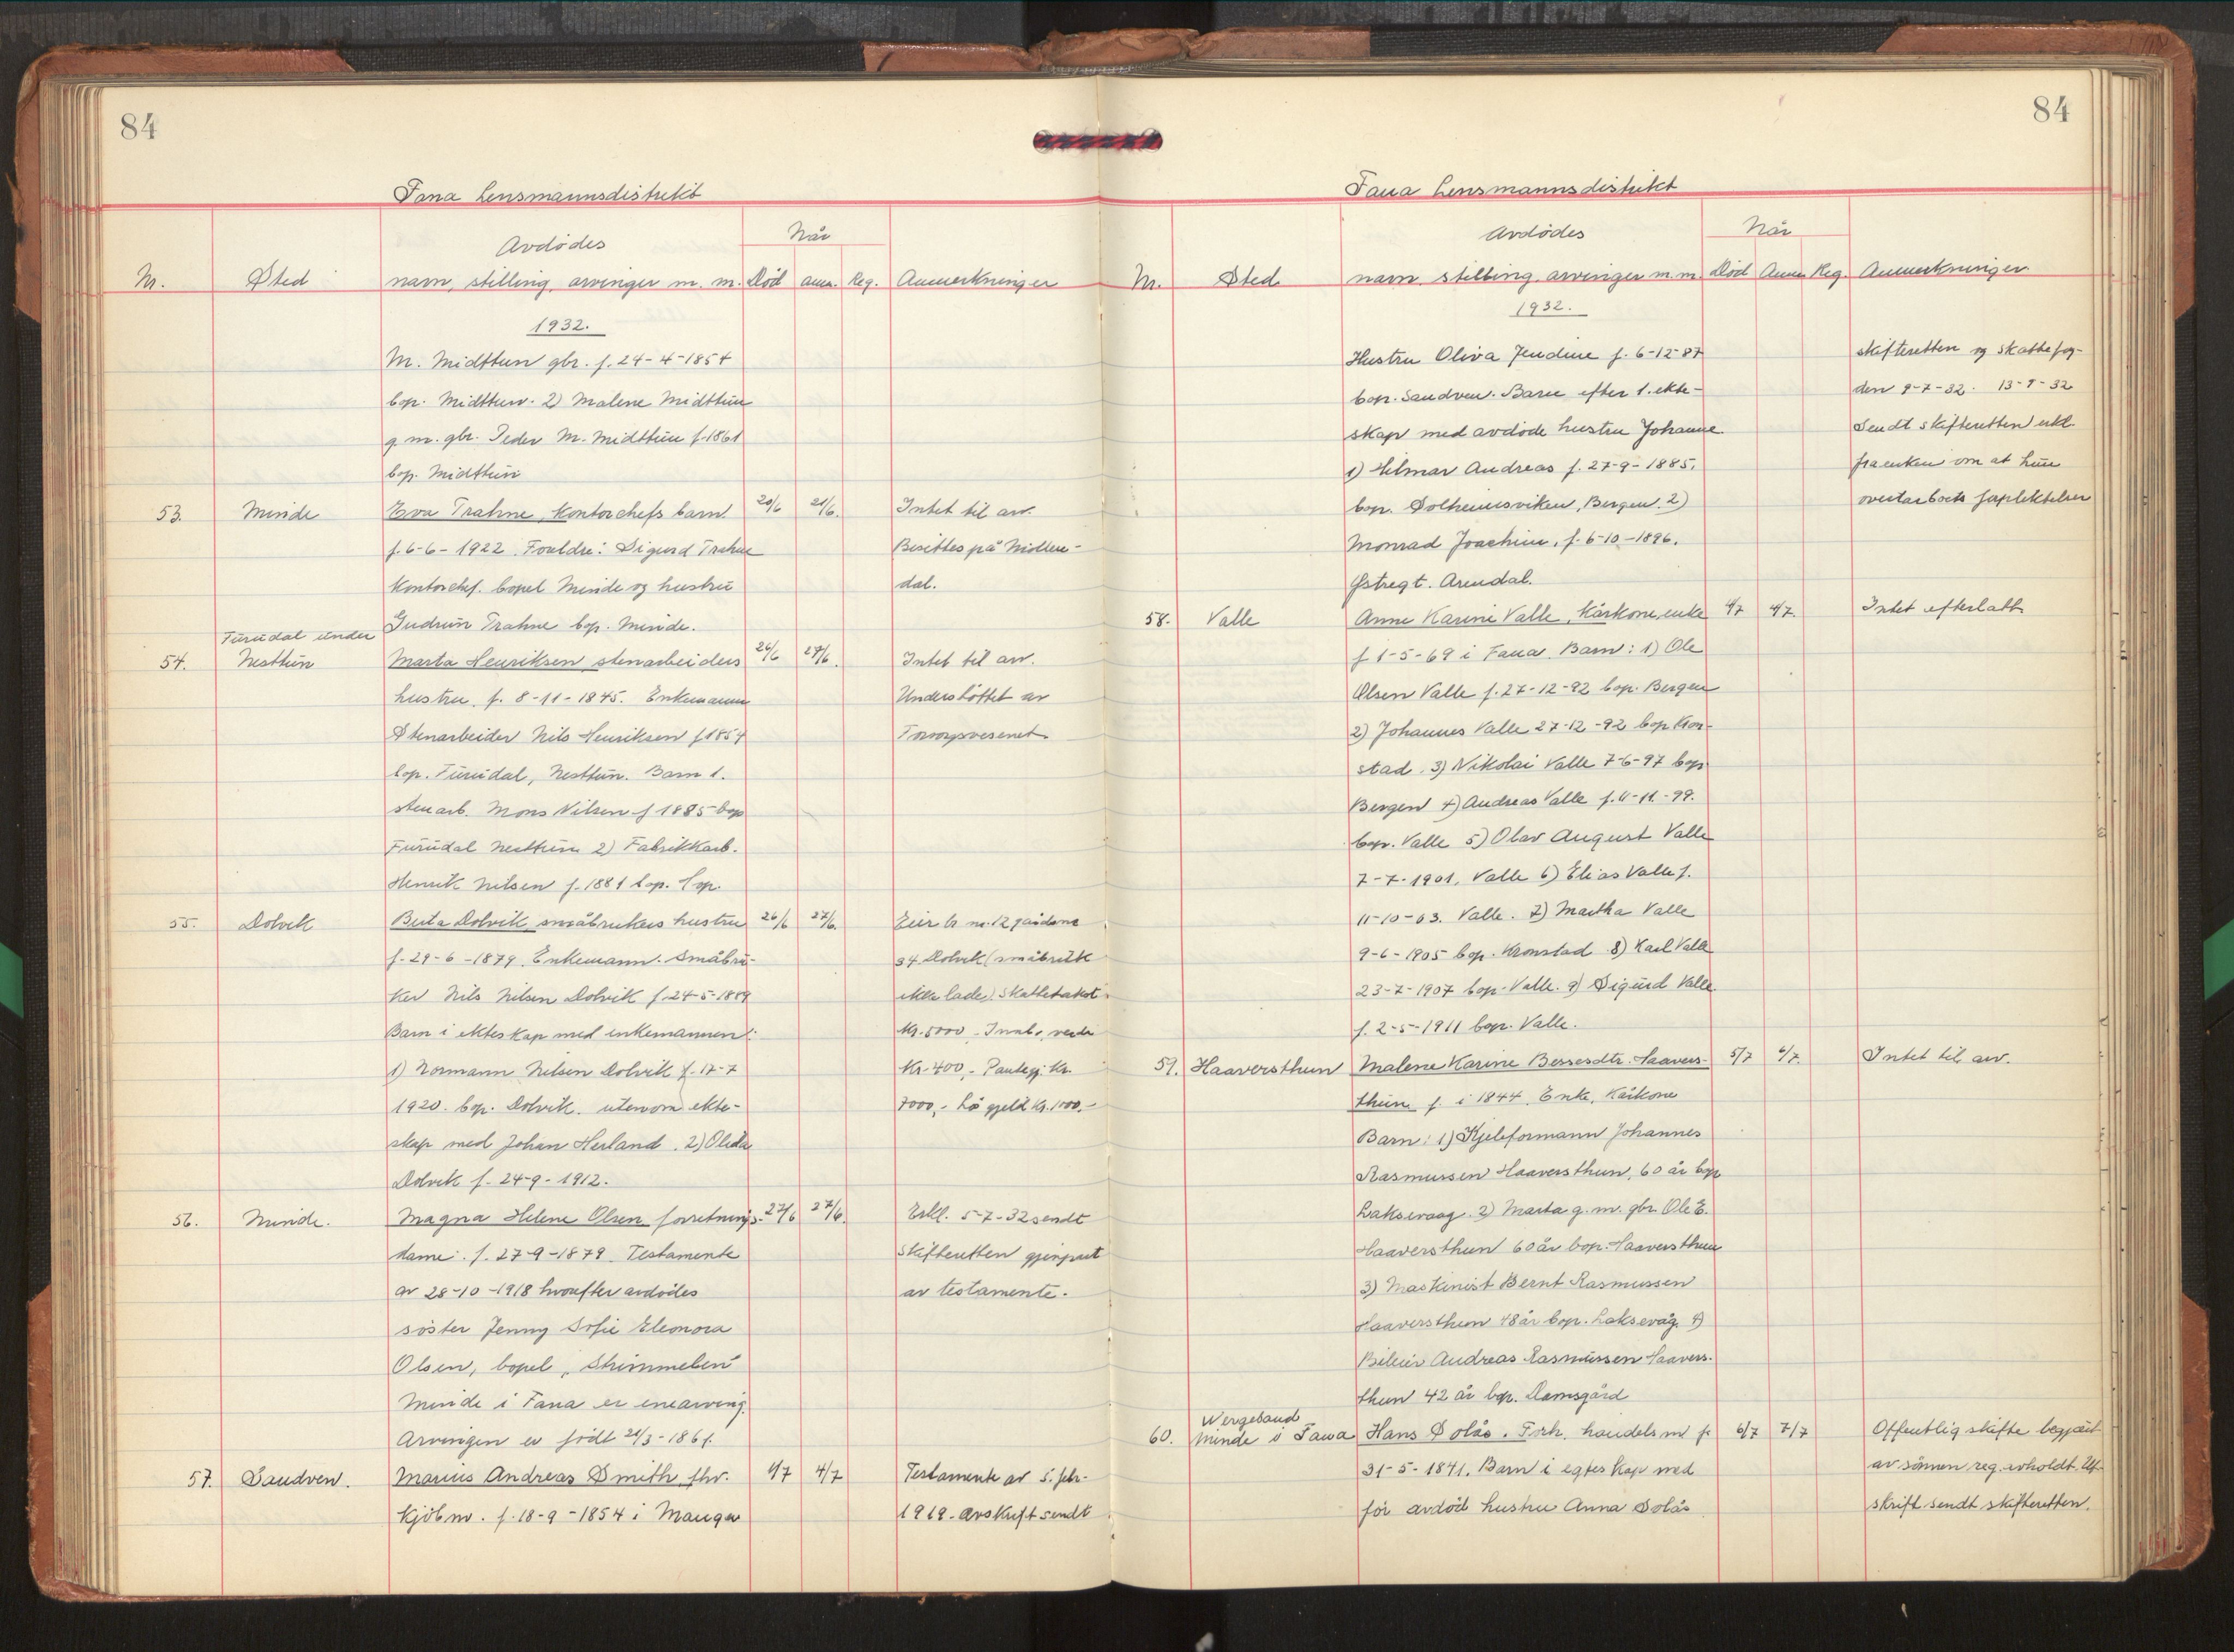 84
Fana Lensmannsdistrikt
Avdödes
Når
Nr. Sted navn, stilling, arvinger m. m. Död anm. Reg. Anmerkninger
1932.
M. Midttun gbr. f. 24-4-1854
bop. Midttun. 2) Malene Midttun
g. m. gbr. Peder M. Midttun f. 1861
bop. Midttun
53. Minde Eva Trahne, kontorchefs barn 20/6 21/6. Intet til arv.
f. 6-6-1922. Foreldre: Sigurd Trahne Besittes på Möllen-
Kontorchef. bopel Minde og hustru dal.
Gudrun Trahne bop. Minde.
Furudal under
54. Nesttun Marta Henriksen stenarbeiders 26/6 27/6. Intet til arv.
hustru. f. 8-11-1845. Enkemann Understöttet av
Stenarbeider Nils Henriksen f 1854 Forsorgsvesenet.
bop. Furudal, Nesttun. Barn 1.
stenarb. Mons Nilsen f 1885 bop
Furudal Nesttun 2) Fabrikkarb.
Henrik Nilsen f. 1881 bop. 
55. Dolvik Berta Dolvik småbrukers hustru 26/6 27/6. Eier b nr. 12 gårdsnr
f. 29-6-1879. Enkemann. Småbru- 34 Dolvik (småbruk
ker Nils Nilsen Dolvik f. 24-5-1889 ikke lade). Skattetakst
Barn i ekteskap med enkemannen: Kr. 5000,- Innbo, verdi
1) Normann Nilsen Dolvik f. 17-7 Kr. 400,- Pantegj. Kr.
1920. bop. Dolvik. utenom ekte- 7000,- Lö gjeld Kr. 1000,-
skap med Johan Herland. 2) Olida
Dolvik f. 24-9-1912.
56. Minde. Magna Helene Olsen forretnings- 27/6 27/6. Erkl. 5-7-32 sendt
dame. f. 27-9-1879. Testamente Skifteretten gjenpart
av 28-10-1918 hvorefter avdödes av testamente.
söster Jenny Sofie Eleonora
Olsen, bopel "Skimmeben"
Minde i Fana er enearving.
Arvingen er född 21/3-1861.
57. Sandven. Marius Andreas Smith fhv. 1/7 4/7 Testamente av 5. febr.
kjöbm. f. 18-9-1854 i Manger 1919. avskrift sendt
84
Fana Lensmannsdistrikt
Avdödes
Når
Nr. Sted navn stilling, arvinger m. m. Död Anm Reg. Anmerkninger
1932.
Hustru Oliva Jendine f. 6-12-87 skifteretten og skattefog-
bop. Sandven. Barn efter 1. ekte- den 9-7-32. 13-9-32
skap med avdöde hustru Johanne. Sendt skifteretten erkl.
1) Hilmar Andreas f. 27-9-1885. fra enken om at hun
bop. Solheimsviken, Bergen. 2) overtar boets forpliktelser
Monrad Joachim. f. 6-10-1896.
Östregt. Arendal.
58. Valle Anne Karine Valle, kårkone, enke 4/7 4/7. Intet efterlatt
f 1-5-69 i Fana. Barn: 1) Ole
Olsen Valle f. 27-12-92 bop. Bergen
2) Johannes Valle 27-12-92 bop Kron-
stad. 3) Nikolai Valle 7-6-97 bop
Bergen 4) Andreas Valle f. 11-11-99.
bop. Valle 5) Olav August Valle
7-7-1901. Valle 6) Elias Valle f.
11-10-03. Valle. 7) Martha Valle
9-6-1905 bop. Kronstad 8) Karl Valle
23-7-1907 bop. Valle. 9) Sigurd Valle
f. 2-5-1911 bop. Valle.
59. Haaversthun Malene Karine Bessesdtr. Haavers- 5/7 6/7. Intet til arv.
thun f. i 1844. Enke, Kårkone
Barn: 1) Kjeleformann Johannes
Rasmussen Haaversthun, 60 år bop
Laksevaag. 2) Marta g. m. gbr. Ole E.
Haaversthun 60 år bop. Haaversthun
3) Maskinist Bernt Rasmussen
Haaversthun 48 år bop. Laksevåg. 4)
Bileier Andreas Rasmussen Haavers-
thun 42 år bop. Damsgård
Wergeland
60. Minde i Fana Hans Solås. Forh. handelsm f. 6/7 7/7 Offentlig skifte begjært
31-5-1841. Barn i egteskap med av sönnen reg. avholdt. Ut-
för avdöd hustru Anna Solås skrift sendt skifteretten.